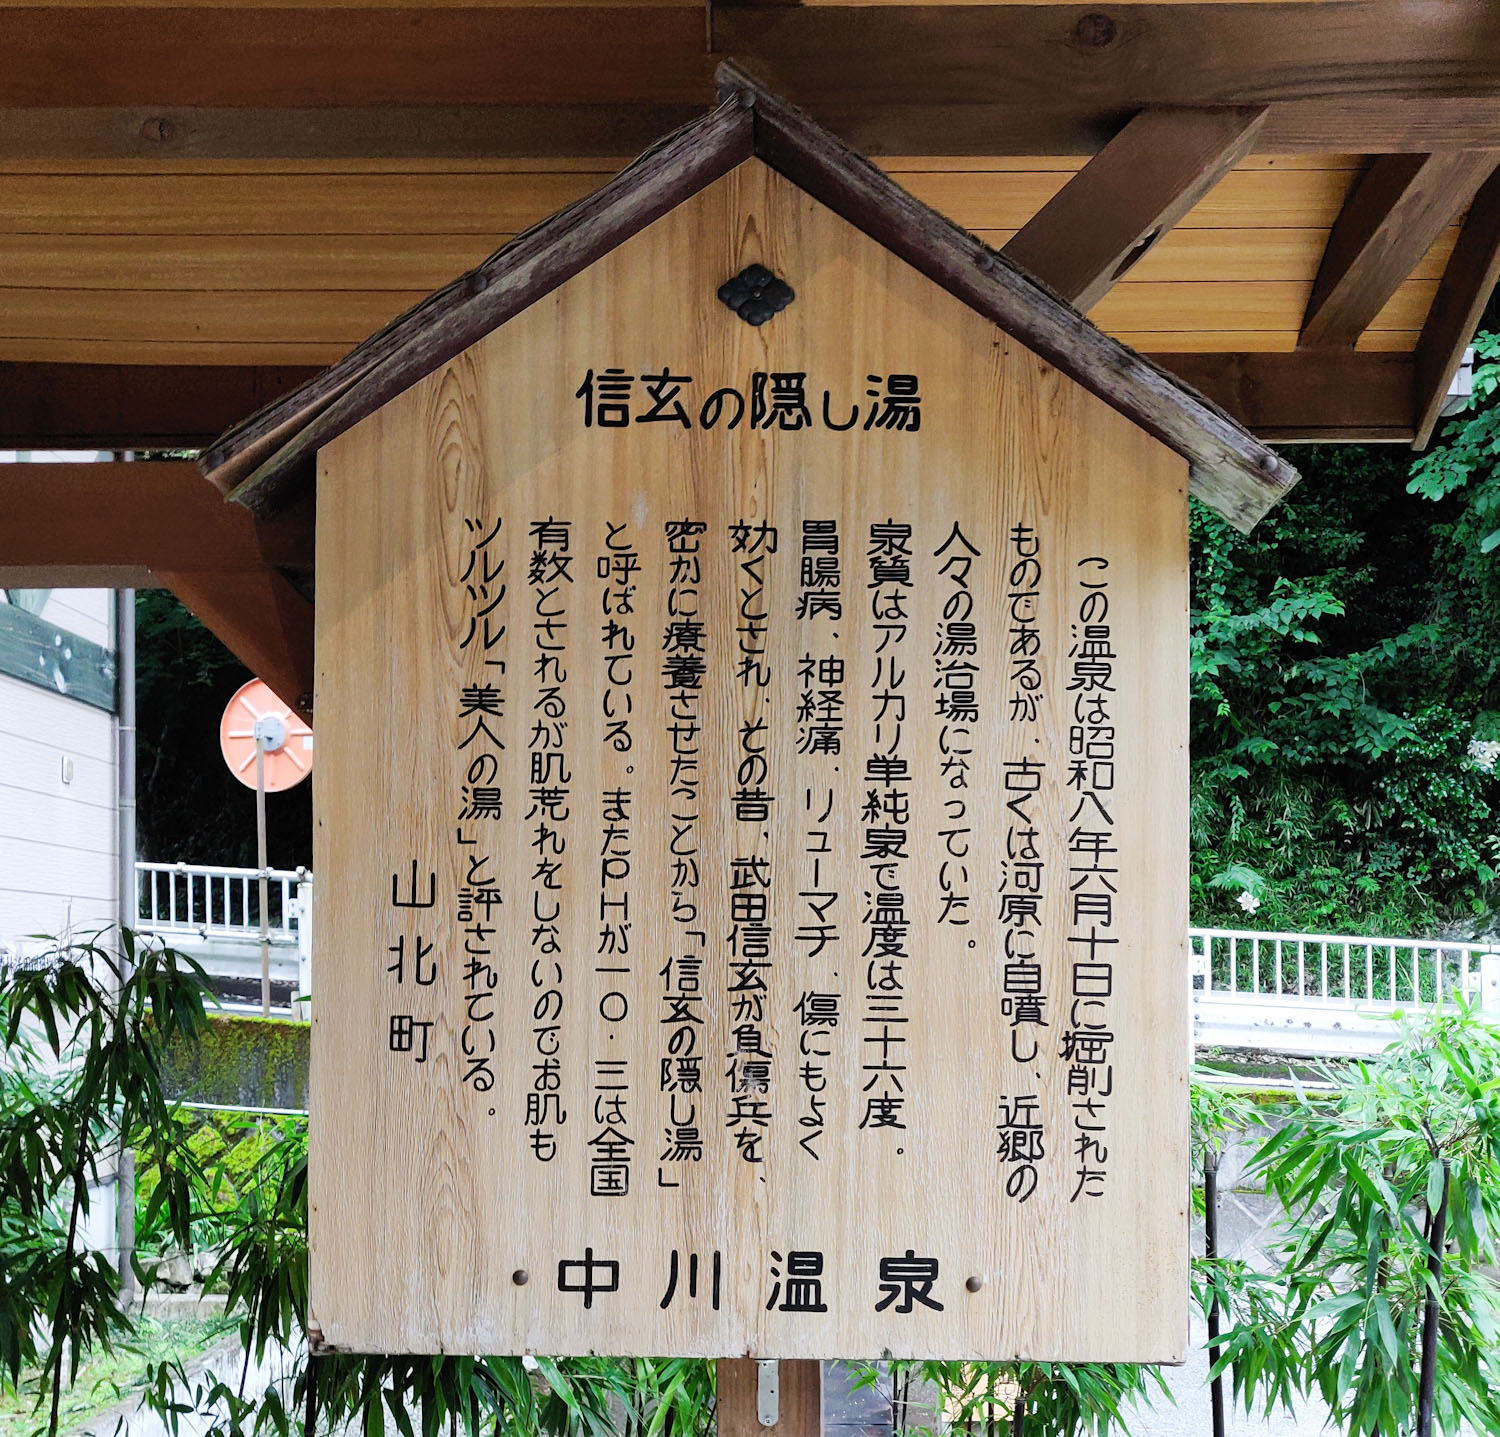 信玄の隠し湯
この温泉は昭和八年六月十日に堀削された
ものであるが、古くは河原に自噴し、近郷の
人々の湯治場になっていた。
泉質はアルカリ単純泉で温度は三十六度。
胃腸病、神経痛、リューマチ、傷にもよく
効くとされ、その昔、武田信玄が負傷兵を、
密かに療養させたことから「信玄の隠し湯」
と呼ばれている。またPHが一〇・三は全国
有数とされるが肌荒れをしないのでお肌も
ツルツル「美人の湯」と評されている。
山北町
中川温泉